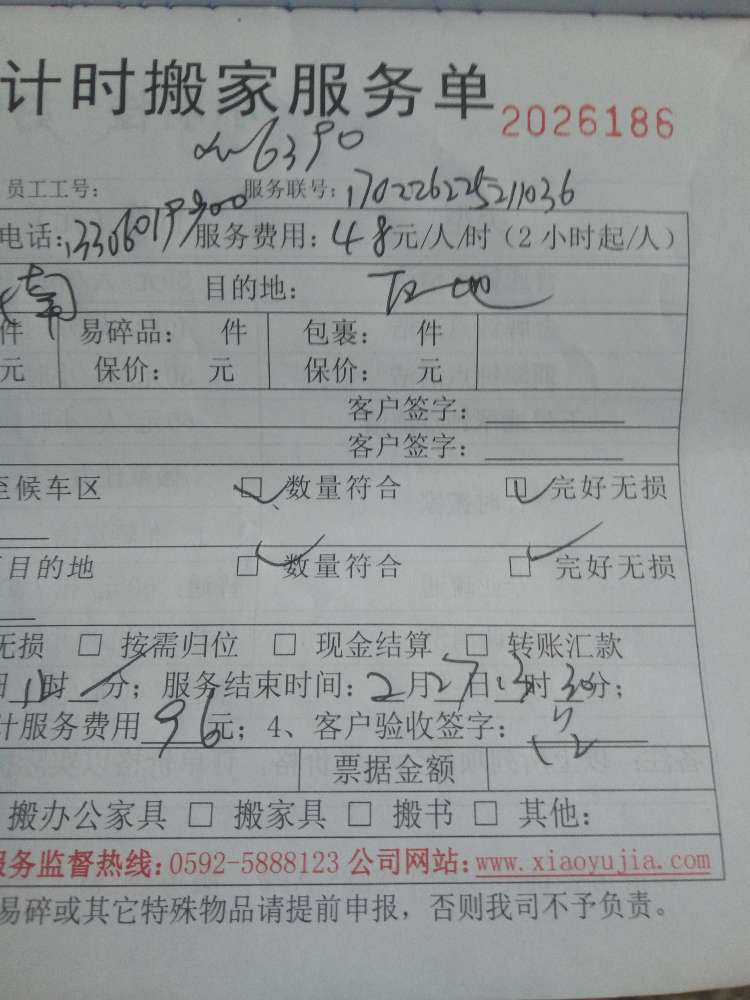 计时搬家服务单 2026186
6390
员工工号： 服务联号：170226225211036
电话：服务费用：48元/人/时（2小时起/人）
南 目的地：
件 易碎品： 件 包裹： 件
元 保价： 元 保价： 元
客户签字：
客户签字：
至候车区 □ 数量符合 □ 完好无损
目的地 □ 数量符合 □ 完好无损
无损 □ 按需归位 □ 现金结算 □ 转账汇款
日 时 分；服务结束时间：2月27日13时30分；
计服务费用96元；4、客户验收签字：
票据金额
搬办公家具 □ 搬家具 □ 搬书 □ 其他：
服务监督热线：0592-5888123 公司网站：www.xiaoyujia.com
易碎或其它特殊物品请提前申报，否则我司不予负责。